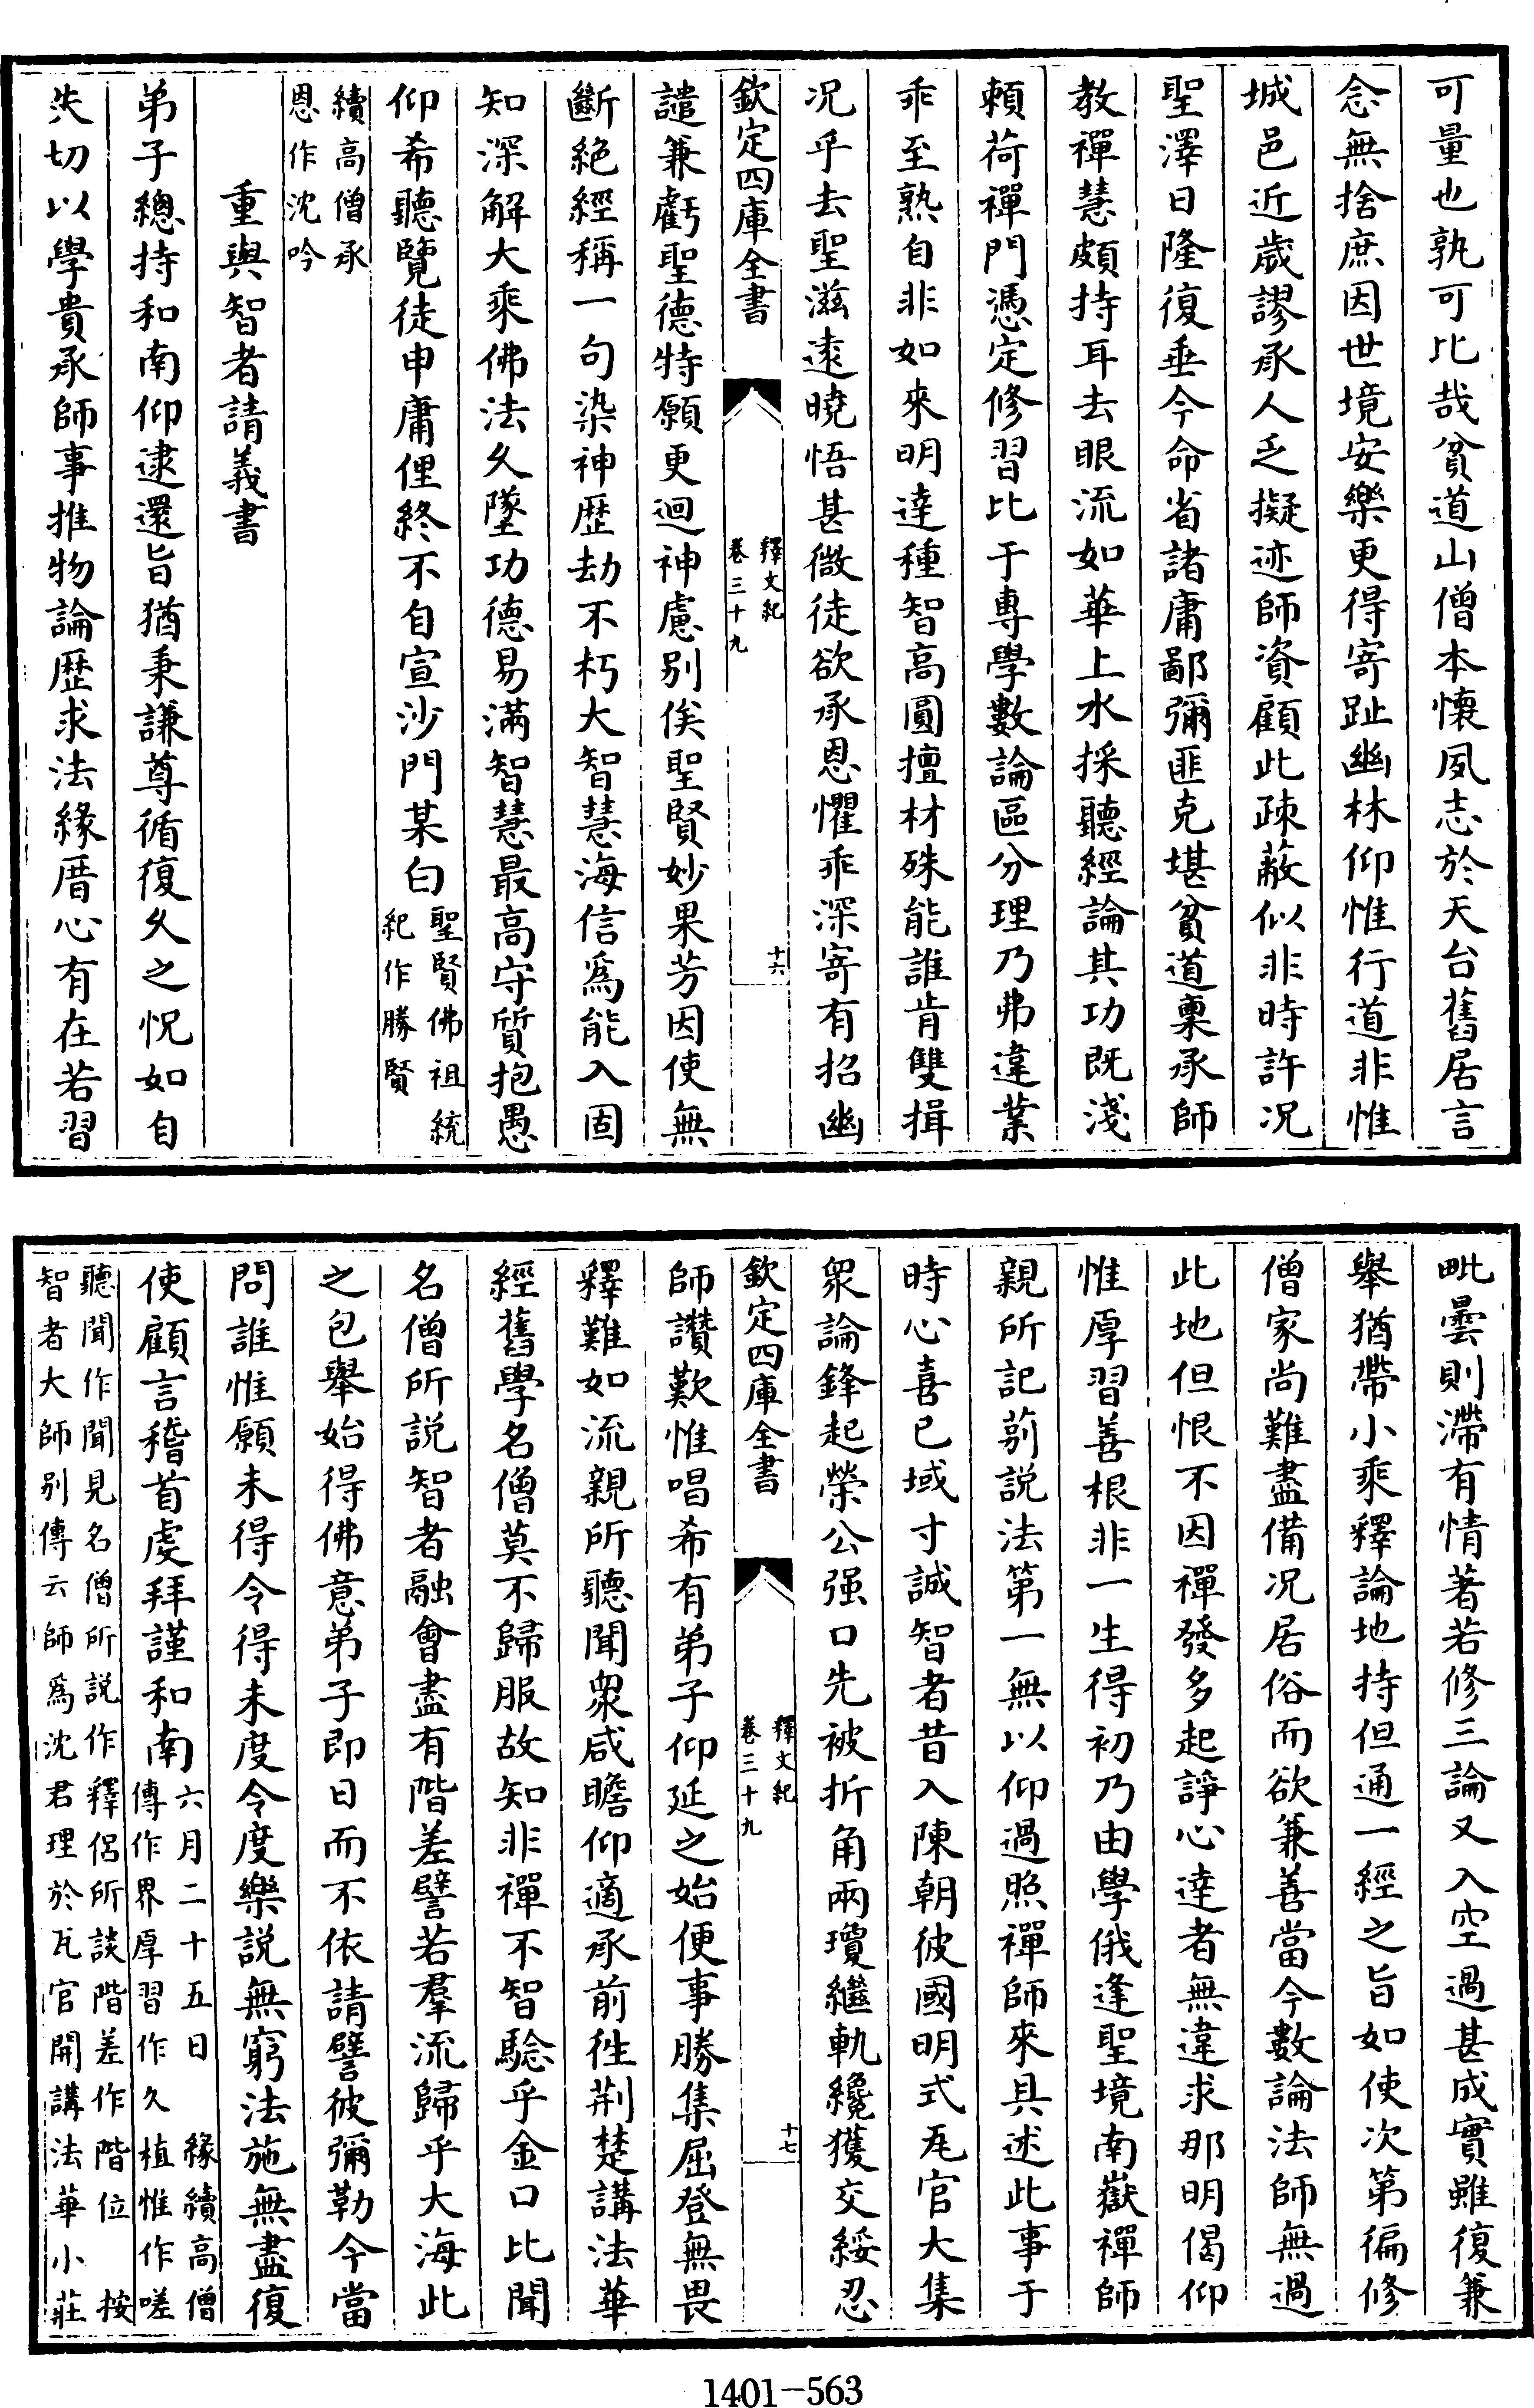 可量也孰可比哉貧道山僧本懷夙志於天台舊居言
念無捨庶因世境安樂更得寄趾幽林仰惟行道非惟
城邑近歲謬承人乏擬迹師資顧此疎蔽似非時許况
聖澤日隆復垂今命省諸庸鄙彌匪克堪貧道稟承師
教禪慧頗持耳去眼流如華上水採聽經論其功既淺
賴荷禪門憑定修習比于專學數論區分理乃弗違業
乖至熟自非如來明達種智高圓擅材殊能誰肯雙揖
况乎去聖滋遠曉悟甚微徒欲承恩懼乖深寄有招幽
欽定四庫全書
釋文紀
卷三十九
十六
譴兼虧聖德特願更迴神慮别俟聖賢妙果芳因使無
斷絶經稱一句染神歴劫不朽大智慧海信為能入固
知深解大乘佛法久墜功德易滿智慧最高守質抱愚
仰希聽覽徒申庸俚終不自宣沙門某白
聖賢佛祖統
紀作勝賢
續高僧承
恩作沈吟
重與智者請義書
弟子總持和南仰逮還旨猶秉謙尊循復久之怳如自
失切以學貴承師事推物論歴求法緣厝心有在若習
毗曇則滯有情著若修三論又入空過甚成實雖復兼
舉猶帶小乘釋論地持但通一經之旨如使次第徧修
僧家尚難盡備况居俗而欲兼善當今數論法師無過
此地但恨不因禪發多起諍心達者無違求那明偈仰
惟厚習善根非一生得初乃由學俄逢聖境南嶽禪師
親所記莂説法第一無以仰過照禪師來具述此事于
時心喜已域寸誠智者昔入陳朝彼國明式瓦官大集
衆論鋒起榮公强口先被折角兩瓊繼軌纔獲交綏忍
欽定四庫全書
釋文紀
卷三十九
十七
師讚歎惟唱希有弟子仰延之始便事勝集屈登無畏
釋難如流親所聽聞衆咸瞻仰適承前徃荆楚講法華
經舊學名僧莫不歸服故知非禪不智騐乎金口比聞
名僧所説智者融會盡有階差譬若羣流歸乎大海此
之包舉始得佛意弟子即日而不依請譬彼彌勒今當
問誰惟願未得令得未度令度樂説無窮法施無盡復
使顧言稽首虔拜謹和南
六月二十五日 緣續高僧
傳作界厚習作久植惟作嗟
聽聞作聞見名僧所説作釋侣所談階差作階位 按
智者大師别傳云師為沈君理於瓦官開講法華小莊
1401-563